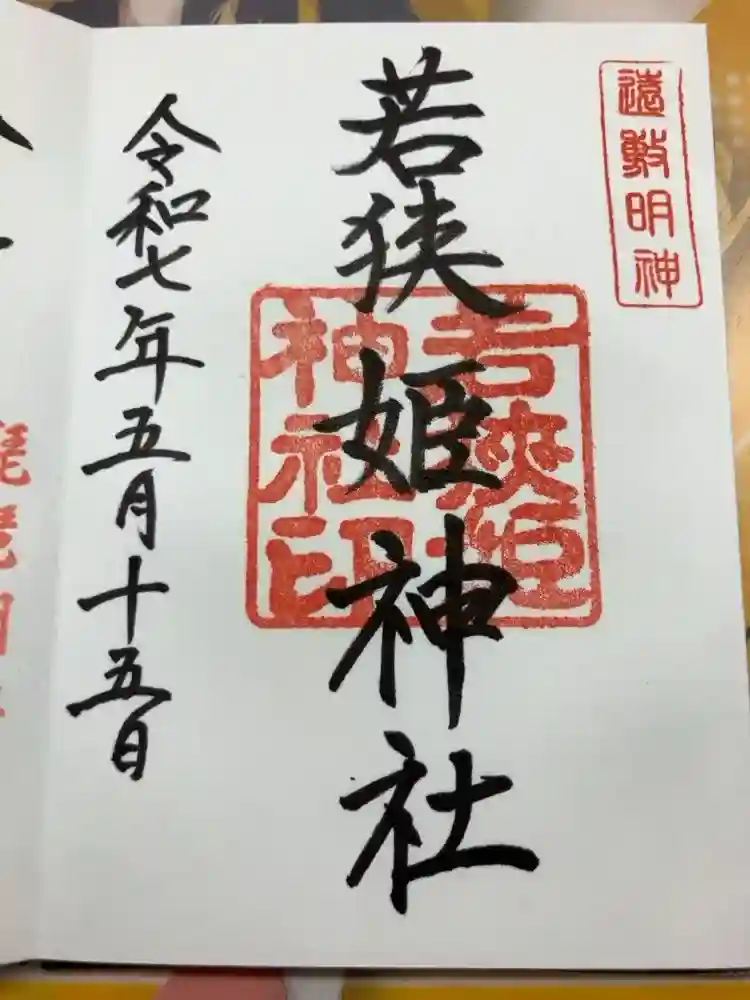 遠敷明神
若狹姫神社
若狹姫
神社印
令和七年五月十五日